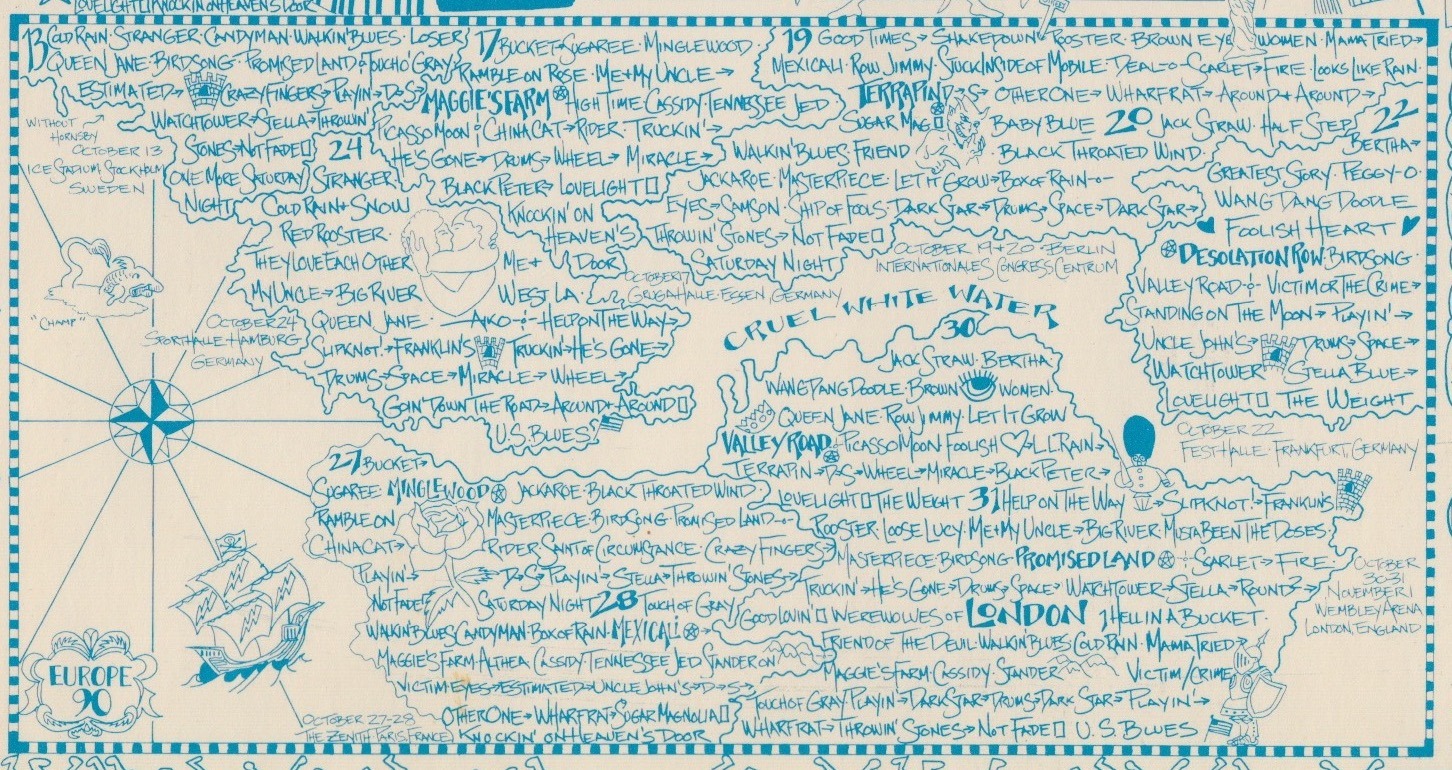 LOVELIGHT KNOCKIN' ON HEAVEN'S DOOR
13 COLD RAIN · STRANGER · CANDYMAN · WALKIN' BLUES · LOSER
QUEEN JANE · BIRDSONG · PROMISED LAND TOUCH O' GRAY
ESTIMATED→ CRAZY FINGERS→PLAYIN'→D→S
WATCHTOWER→STELLA→THROWIN'
STONES→NOT FADE
ONE MORE SATURDAY
NIGHT
WITHOUT →
HORNSBY
OCTOBER 13
ICE STADIUM, STOCKHOLM
SWEDEN
17 BUCKET→SUGAREE · MINGLEWOOD
RAMBLE ON ROSE · ME + MY UNCLE→
MAGGIE'S FARM HIGH TIME · CASSIDY · TENNESSEE JED
PICASSO MOON CHINA CAT→RIDER · TRUCKIN'→
HE'S GONE→DRUMS→WHEEL→MIRACLE→
BLACK PETER→LOVELIGHT
KNOCKIN' ON
HEAVEN'S
DOOR
OCTOBER 17
GRUGAHALLE · ESSEN, GERMANY
19 GOOD TIMES→SHAKEDOWN ROOSTER · BROWN EYE WOMEN · MAMA TRIED→
MEXICALI · ROW JIMMY · STUCK INSIDE OF MOBILE · DEAL-o-SCARLET→FIRE · LOOKS LIKE RAIN ·
TERRAPIN D→S→OTHER ONE→WHARF RAT→AROUND + AROUND→
SUGAR MAG BABY BLUE 20 JACK STRAW · HALF STEP
WALKIN' BLUES · FRIEND BLACK THROATED WIND ·
JACKAROE · MASTERPIECE · LET IT GROW→BOX OF RAIN -o-
EYES→SAMSON · SHIP OF FOOLS · DARK STAR→DRUMS→SPACE→DARK STAR→
THROWIN' STONES→NOT FADE
SATURDAY NIGHT
OCTOBER 19 + 20 · BERLIN
INTERNATIONALES CONGRESS CENTRUM
22
BERTHA→
GREATEST STORY · PEGGY-O ·
WANG DANG DOODLE
FOOLISH HEART
DESOLATION ROW · BIRDSONG ·
VALLEY ROAD -o- VICTIM OR THE CRIME→
STANDING ON THE MOON→PLAYIN'→
UNCLE JOHN'S→ DRUMS→SPACE→
WATCHTOWER STELLA BLUE→
LOVELIGHT THE WEIGHT
OCTOBER 22
FESTHALLE · FRANKFURT, GERMANY
24
STRANGER
COLD RAIN + SNOW
RED ROOSTER ·
THEY LOVE EACH OTHER ME +
MY UNCLE→BIG RIVER WEST L.A. ·
QUEEN JANE AIKO -:- HELP ON THE WAY→
SLIPKNOT!→FRANKLIN'S TRUCKIN'→HE'S GONE→
DRUMS→SPACE→MIRACLE→WHEEL→
GOIN' DOWN THE ROAD→AROUND + AROUND
U.S. BLUES
OCTOBER 24
SPORTHALLE · HAMBURG
GERMANY
"CHAMP"
CRUEL WHITE WATER
27 BUCKET→
SUGAREE · MINGLEWOOD JACKAROE · BLACK THROATED WIND
RAMBLE ON MASTERPIECE · BIRDSONG · PROMISED LAND -o-
CHINA CAT→ RIDER · SAINT OF CIRCUMSTANCE · CRAZY FINGERS→
PLAYIN'→ D→S→PLAYIN'→STELLA→THROWIN' STONES→
NOT FADE SATURDAY NIGHT 28 TOUCH OF GRAY
WALKIN' BLUES CANDYMAN · BOX OF RAIN · MEXICALI
MAGGIE'S FARM · ALTHEA · CASSIDY · TENNESSEE JED STANDER ON
VICTIM · EYES→ESTIMATED→UNCLE JOHN'S→D→S→
OTHER ONE→WHARF RAT→SUGAR MAGNOLIA
KNOCKIN' ON HEAVEN'S DOOR
OCTOBER 27-28
THE ZENITH · PARIS, FRANCE
30
JACK STRAW · BERTHA ·
WANG DANG DOODLE · BROWN WOMEN ·
QUEEN JANE · ROW JIMMY · LET IT GROW
VALLEY ROAD PICASSO MOON FOOLISH ♡ L.L. RAIN→
TERRAPIN→D→S→WHEEL→MIRACLE→BLACK PETER→
LOVELIGHT THE WEIGHT 31 HELP ON THE WAY →SLIPKNOT!→FRANKLIN'S
ROOSTER · LOOSE LUCY · ME + MY UNCLE→BIG RIVER · MUSTA BEEN THE DOSES
MASTERPIECE · BIRDSONG · PROMISED LAND -:- SCARLET→FIRE
TRUCKIN'→HE'S GONE→DRUMS→SPACE→WATCHTOWER→STELLA→ROUND²→
GOOD LOVIN' WEREWOLVES OF LONDON 1 HELL IN A BUCKET ·
FRIEND OF THE DEVIL · WALKIN' BLUES COLD RAIN · MAMA TRIED
MAGGIE'S FARM · CASSIDY · STANDER VICTIM/CRIME
TOUCH OF GRAY · PLAYIN'→DARK STAR→DRUMS→DARK STAR→PLAYIN'→
WHARF RAT→THROWIN' STONES→NOT FADE U.S. BLUES
OCTOBER
30·31
NOVEMBER 1
WEMBLEY ARENA
LONDON, ENGLAND
EUROPE
90